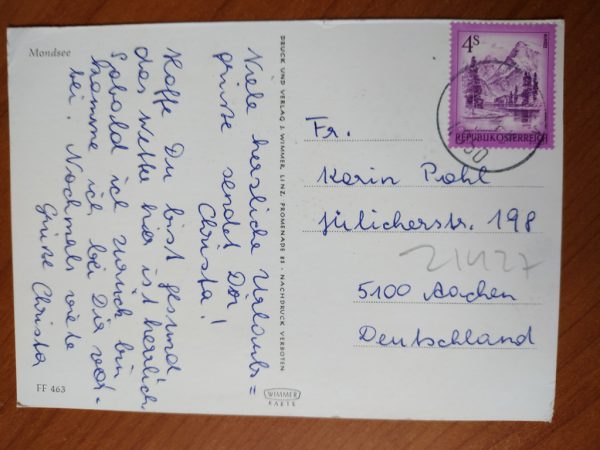 Mondsee
Viele herzliche Urlaubs=
grüße sendet Dir
Christa!
Hoffe Du bist gesund
das Wetter hier ist herrlich
Sobald ich zurück bin
komme ich bei Dir vor-
bei. Nochmals viele
Grüße Christa
FF 463
DRUCK UND VERLAG J. WIMMER, LINZ, PROMENADE 23 · NACHDRUCK VERBOTEN
WIMMER
KARTE
4S
REPUBLIK ÖSTERREICH
Fr.
Karin Pohl
Jülicherstr. 198
21427
5100 Aachen
Deutschland